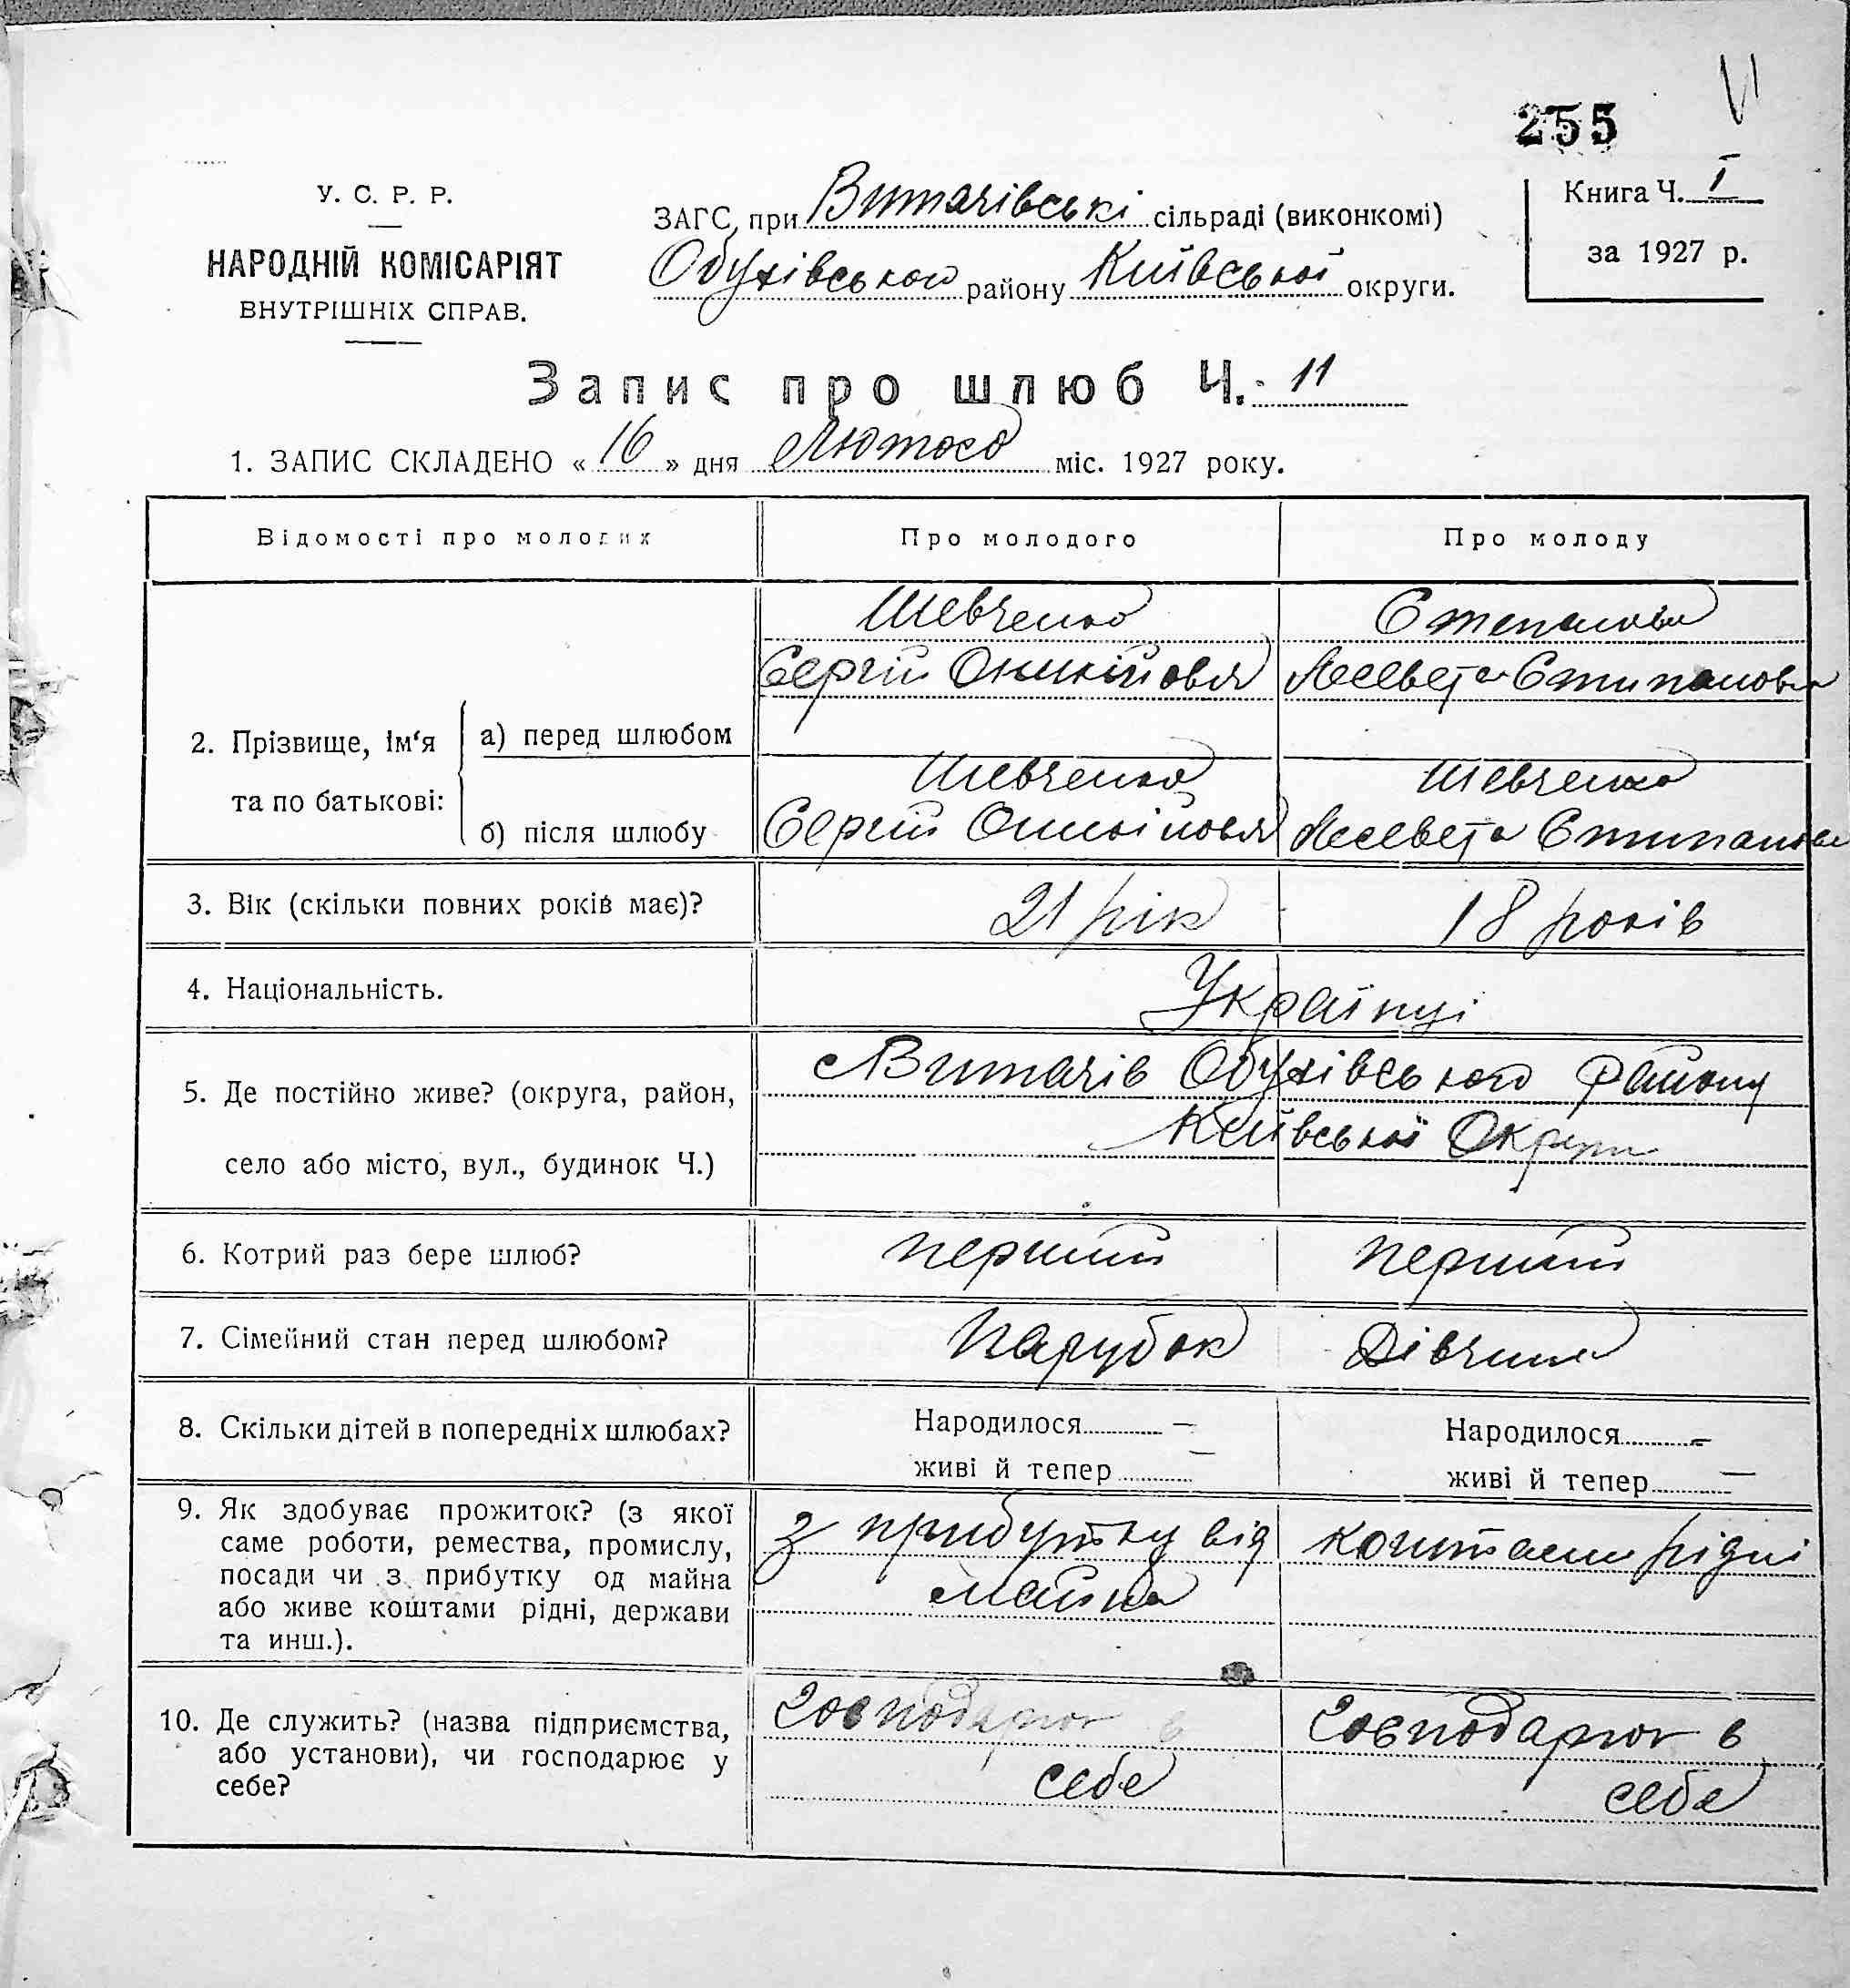 255
VI
У. С. Р. Р.
НАРОДНІЙ КОМІСАРІЯТ
ВНУТРІШНІХ СПРАВ.
ЗАГС при Витачівські сільраді (виконкомі)
Обухівського району Київської округи.
Книга Ч. I
за 1927 р.
Запис про шлюб Ч. 11
1. ЗАПИС СКЛАДЕНО « 16 » дня Лютого міс. 1927 року.
Відомості про молодих
Про молодого
Про молоду
2. Прізвище, ім‘я
та по батькові:
а) перед шлюбом
Шевченко
Сергій
Степанова
Лесевета
б) після шлюбу
Шевченко
Сергій
Шевченко
Лесевета
3. Вік (скільки повних років має)?
21 рік
18 років
4. Національність.
Українці
5. Де постійно живе? (округа, район,
село або місто, вул., будинок Ч.)
с Витачів Обухівського Району
Київської Округи
6. Котрий раз бере шлюб?
перший
перший
7. Сімейний стан перед шлюбом?
Парубок
Дівчина
8. Скільки дітей в попередніх шлюбах?
Народилося —
живі й тепер —
Народилося —
живі й тепер —
9. Як здобуває прожиток? (з якої
саме роботи, ремества, промислу,
посади чи з прибутку од майна
або живе коштами рідні, держави
та инш.).
з прибутку від
майна
коштами рідні
10. Де служить? (назва підприємства,
або установи), чи господарює у
себе?
Господарює в
себе
Господарює в
себе